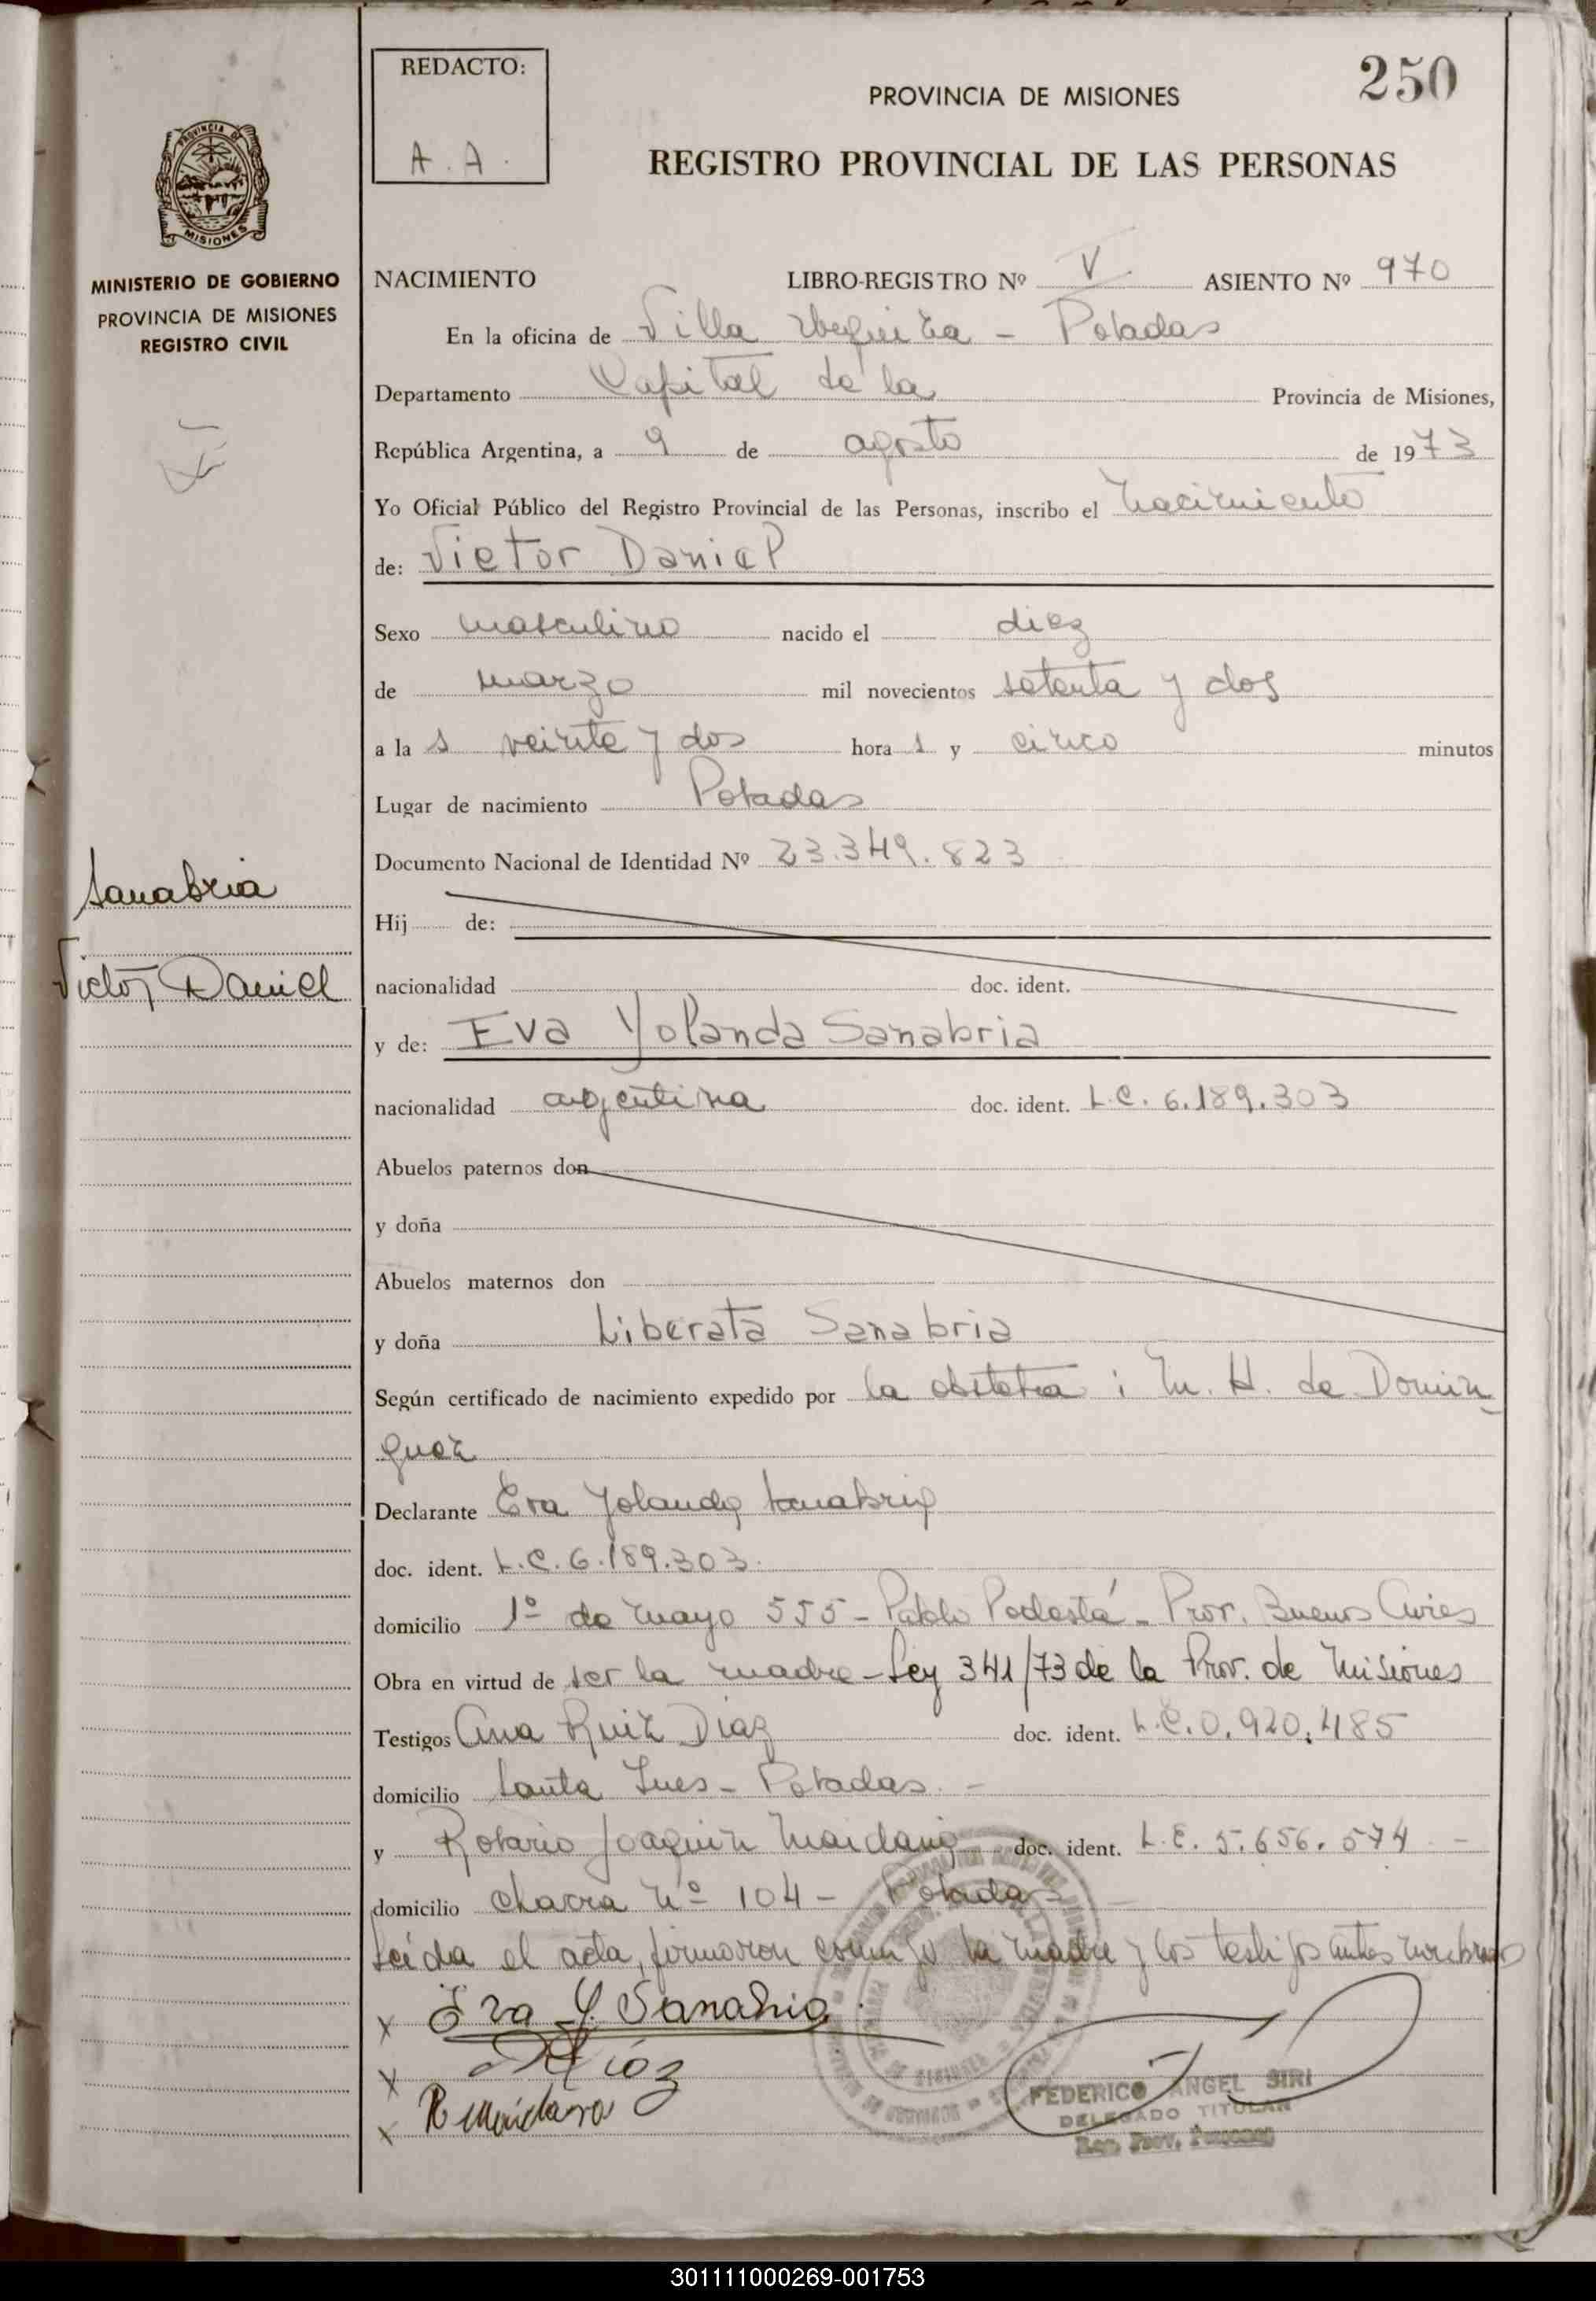 REDACTO:
A. A.
250
PROVINCIA DE MISIONES
REGISTRO PROVINCIAL DE LAS PERSONAS
PROVINCIA DE
MISIONES
MINISTERIO DE GOBIERNO
PROVINCIA DE MISIONES
REGISTRO CIVIL
NACIMIENTO LIBRO-REGISTRO Nº V ASIENTO Nº 970
En la oficina de Villa Urquiza - Posadas
Departamento Capital de la Provincia de Misiones,
República Argentina, a 9 de agosto de 1973
Yo Oficial Público del Registro Provincial de las Personas, inscribo el nacimiento
de: Victor Daniel
Sexo masculino nacido el diez
de marzo mil novecientos setenta y dos
a la s veinte y dos hora s y cinco minutos
Lugar de nacimiento Posadas
Documento Nacional de Identidad Nº 23.349.823
Sanabria
Victor Daniel
Hij de:
nacionalidad doc. ident.
y de: Eva Yolanda Sanabria
nacionalidad argentina doc. ident. L.C. 6.189.303
Abuelos paternos don
y doña
Abuelos maternos don
y doña Liberata Sanabria
Según certificado de nacimiento expedido por la obstetra: M. H. de Domin
guez
Declarante Eva Yolanda Sanabria
doc. ident. L.C. 6.189.303.
domicilio 1º de mayo 555 - Pablo Podestá - Prov. Buenos Aires
Obra en virtud de ser la madre - Ley 341/73 de la Prov. de Misiones
Testigos Ana Ruiz Diaz doc. ident. L.C. 0.920.485
domicilio Santa Ines - Posadas. -
y Rosario Joaquin Maidana doc. ident. L.E. 5.656.574 -
domicilio chacra Nº 104 - Posadas
Leida el acta, firmaron conmigo la madre y los testigos antes nombrados
x Eva Y. Sanabria
x Díaz
x R Maidana
FEDERICO ANGEL SIRI
DELEGADO TITULAR
Reg. Prov. Personas
301111000269-001753